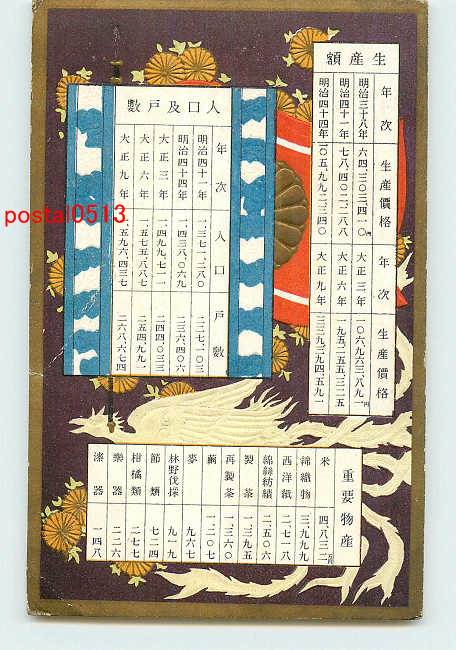 生産額
年次 生産価格
明治三十八年 六四、三〇三、四一〇円
明治四十一年 七八、四〇二、二八八
明治四十四年 一〇五、九九二、三四〇
年次 生産価格
大正三年 一〇六、九六三、八九一円
大正六年 一九五、二五五、三二五
大正九年 三三九、三九四、五九一
人口及戸數
年次 人口 戸數
明治四十一年 一、三七一、二八〇 二三七、一〇三
明治四十四年 一、四三八、〇六九 二三六、四〇六
大正三年 一、四九九、七一一 二四四、〇三三
大正六年 一、五七五、八八七 二五四、九九一
大正九年 一、五九六、四三七 二六八、六七四
重要物産
米 四、八三二
綿織物 三、九九九
西洋紙 二、七一八
綿絲紡績 二、五〇六
製茶 一、三九五
再製茶 一、三六〇
繭 一、二〇七
麥 九六七
林野伐採 九一九
節類 七二四
柑橘類 二七七
樂器 二二六
漆器 一四八
postal0513